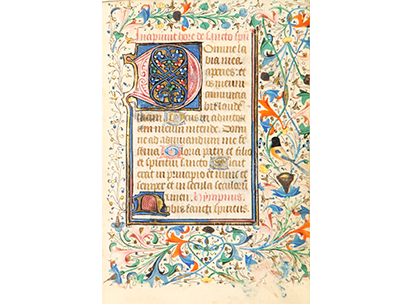 Incipiunt hore de sancto spu
Domine la
bia mea
aperies: et
os meum
annuncia
bit laude
tuam Deus in adiuto
rium meum intende. Domi
ne ad adiuvandum me fe
stina Gloria patri et filio
et spiritui sancto Sicut
erat in principio et nunc et
semper et in secula seculorum
amen. Hympnus
Nobis sancti spiritus